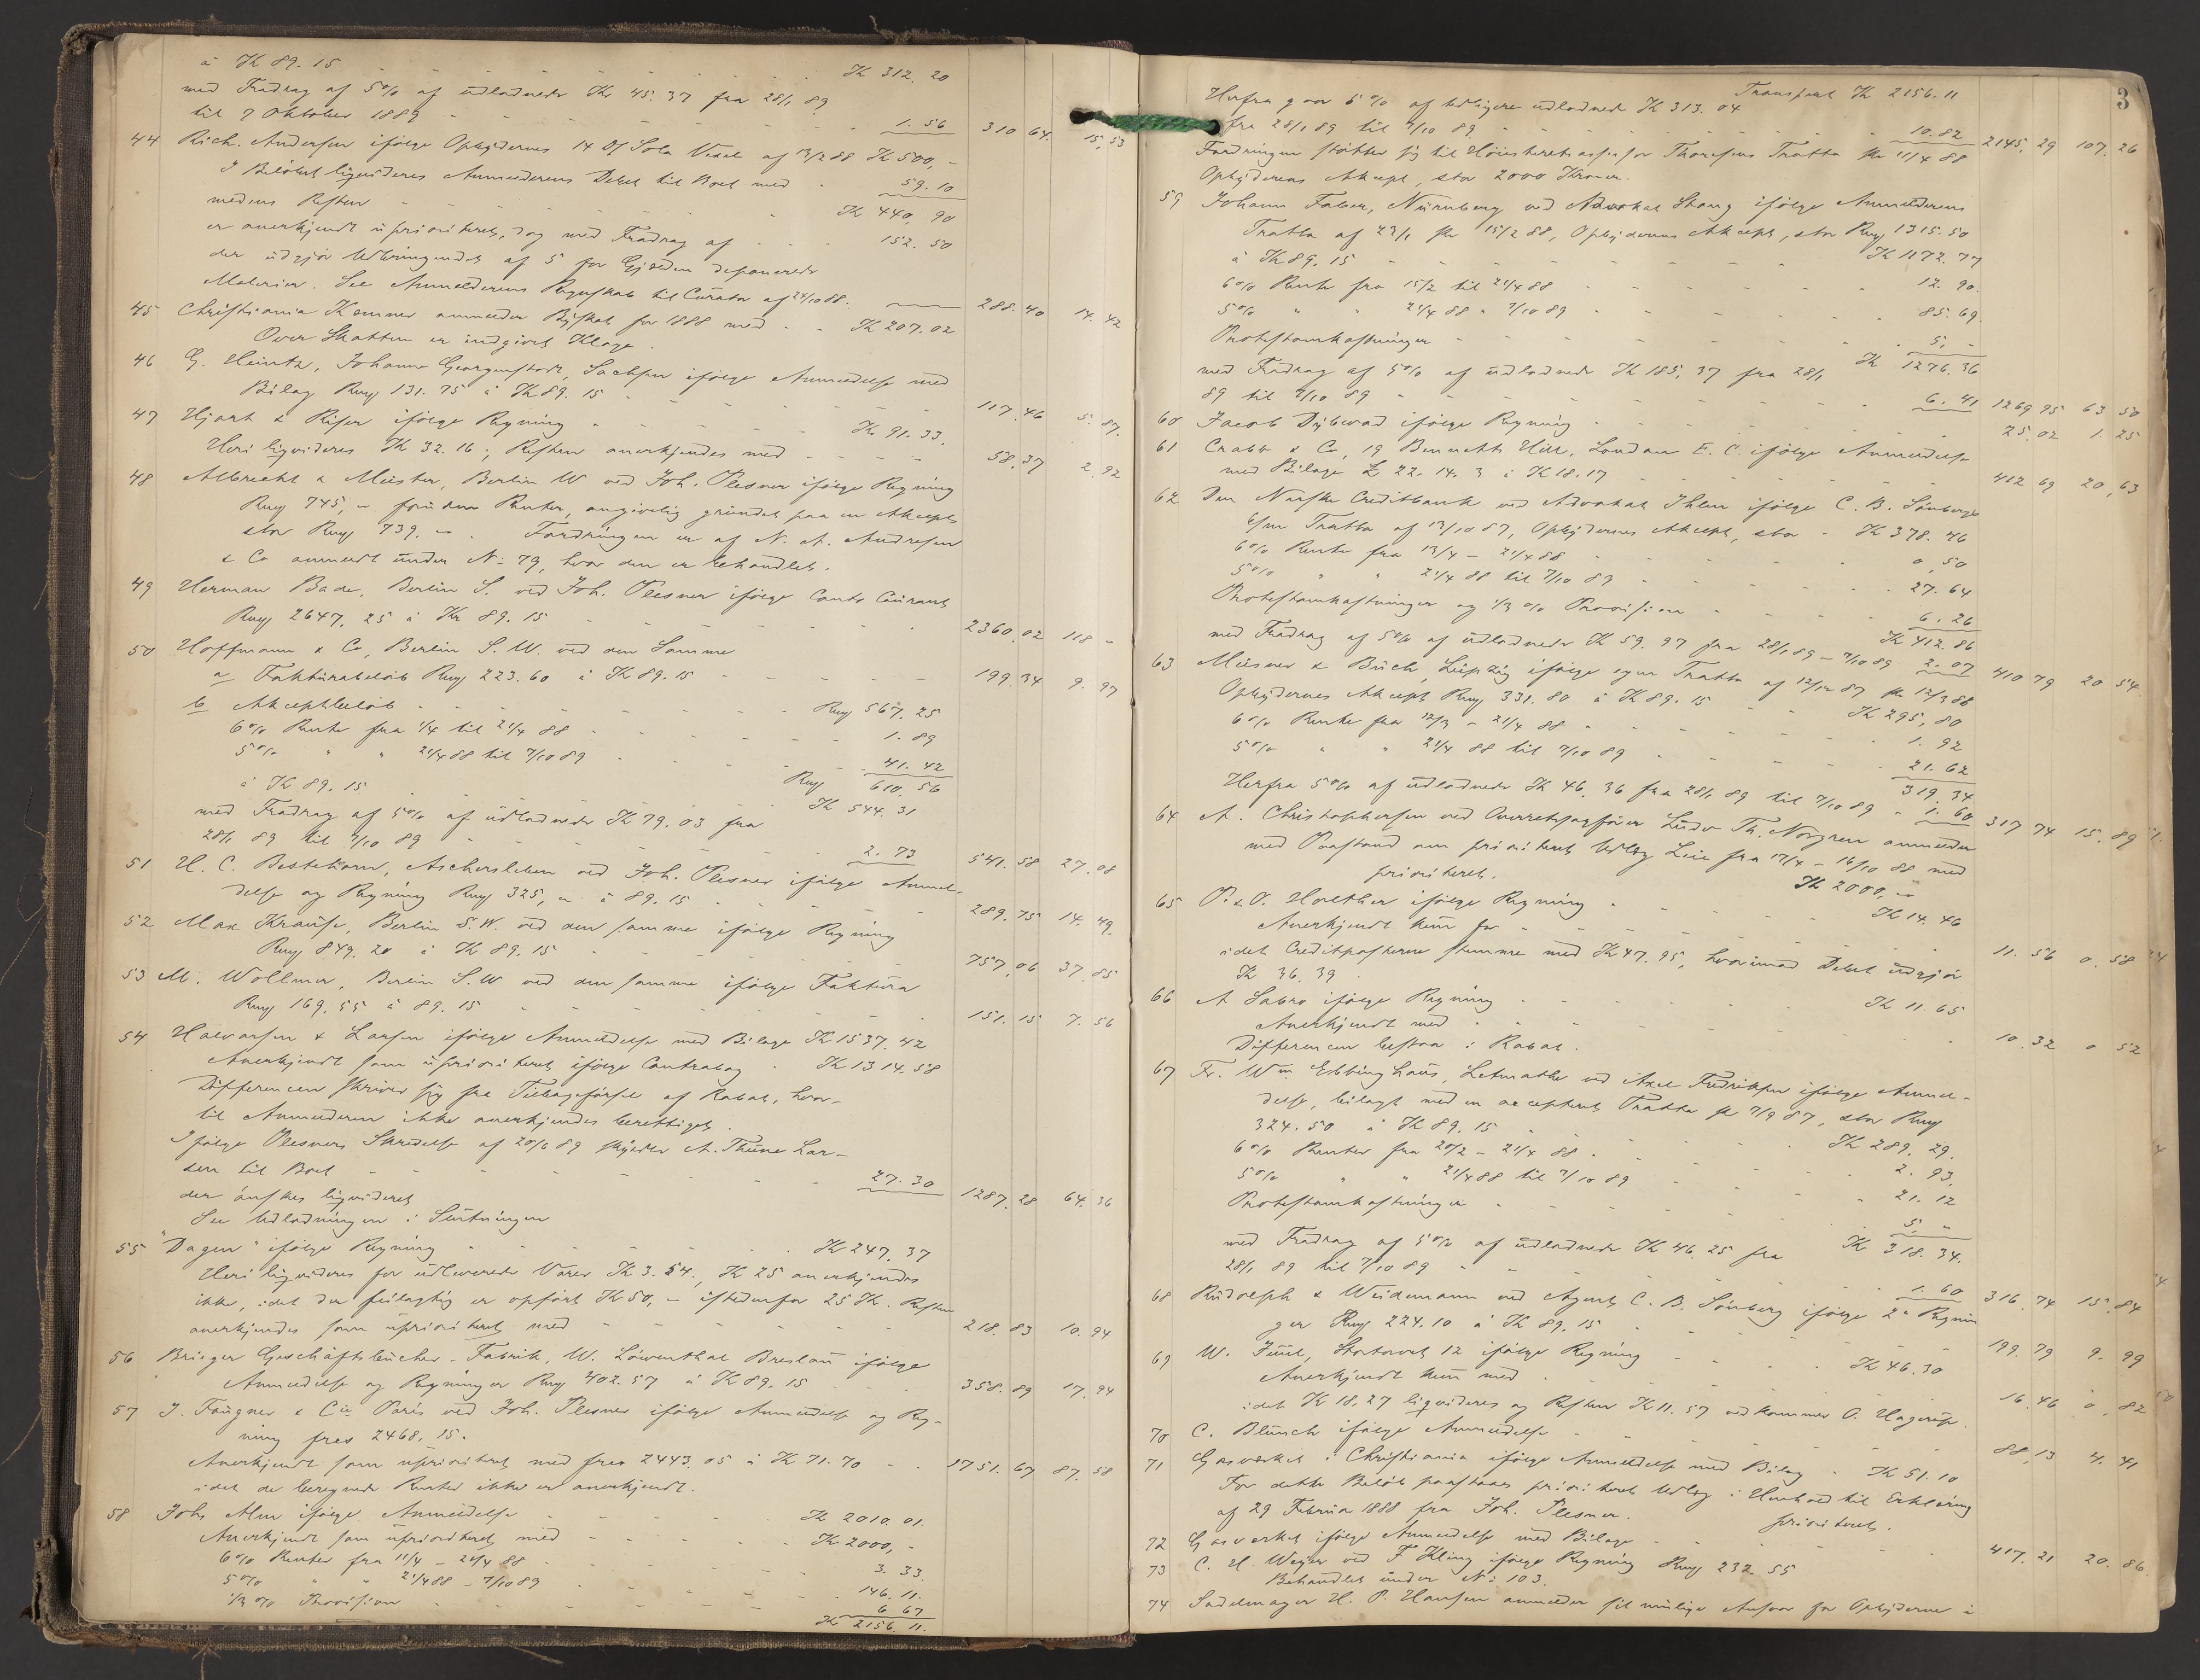 à Kr 89.15 Kr 312.20
med Fradrag af 5% af udlodnede Kr 45.37 fra 28/1 89
til 7 Oktober 1889 1.56 310 64. 15,53
44 Rich. Andersen ifølge Opbydernes 14 Df Sola Vexel af 13/2 88 Kr 500,-
I Beløbet ligvideres Anmelderens Debet til Boet med 59.10
medens Resten Kr 440,90
er anerkjendt uprioriteret, dog med Fradrag af 152.50
der udgjør Udbringendet af 5 for Gjælden deponerede
Malerier. See Anmelderens Regnskab til Curator af 24/10 88. 288.40 14.42
45 Christiania Kemner anmelder Byskat for 1888 med Kr 207.02
Over Skatten er indgivet Klage.
46 G. Heintz, Johann Georgenstadt, Sachsen ifølge Anmeldelse med
Bilag Rmg 131.75 à Kr 89.15 117.46 5.87.
47 Hjort & Riser ifølge Regning Kr 91.33.
Heri ligvideres Kr 32.16; Resten anerkjendes med 58,37 2.92
48 Albrecht & Meister, Berlin W ved Joh. Plesner ifølge Regning
Rmg 745,- foruden Renter, angivelig grundet paa en Akcept
stor Rmg 739.-. Fordringen er af N. A. Andresen
& Co anmeldt under No 79, hvor den er behandlet.
49 Herman Bade, Berlin S. ved Joh. Plesner ifølge Conto Courant
Rmg 2647,25 à Kr 89.15 2360.02 118 -
50 Hoffmann & Co, Berlin S.W. ved den Samme
a Fakturabeløb Rmg 223.60 à Kr 89.15 199.34 9.97
b Akceptbeløb Rmg 567.25
6% Rente fra 1/4 til 21/4 88 1.89
5% " " 21/4 88 til 7/10 89 41.42
Rmg 610.56
à Kr 89.15 Kr 544.31
med Fradrag af 5% af udlodnede Kr 79.03 fra
28/1 89 til 7/10 89 2.73 541.58 27.08
51 H. C. Bestehorn, Aschersleben ved Joh. Plesner ifølge Anmel-
delse og Regning Rmg 325,- à 89.15 289.75 14.49.
52 Max Krause, Berlin S.W. ved den samme ifølge Regning
Rmg 849.20 à Kr 89.15 757,06 37.85
53 M. Wollmer, Berlin S.W ved den samme ifølge Faktura
Rmg 169.55 à 89.15 151.15 7.56
54 Halvorsen & Larsen ifølge Anmeldelse med Bilage Kr 1537.42
Anerkjendt som uprioriteret ifølge Contrabog Kr 1314.58
Differencen skriver sig fra Tilbageførsel af Rabat, hvor-
til Anmelderen ikke anerkjendes berettiget.
Ifølge Plesners Skrivelse af 20/6 89 skylder A. Thune Lar-
sen til Boet 27.30 1287.28 64.36
der ønskes ligvideret
See Udlodningen i Slutningen
55 "Dagen" ifølge Regning Kr 247.37
Heri ligvideres for udleverede Varer Kr 3.54., Kr 25 anerkjendes
ikke, idet der feilagtig er opført Kr 50,- istedenfor 25 Kr. Resten
anerkjendes som uprioriteret med 218.83 10.94
56 Brieger Geschäftsbücher-Fabrik, W. Löwenthal Breslau ifølge
Anmeldelse og Regninger Rmg 402.57 à Kr 89.15 358.89 17.94
57 J. Faugner & Cie Paris ved Joh. Plesner ifølge Anmeldelse og Reg-
ning frcs 2468.15.
Anerkjendt som uprioriteret med frcs 2443.05 à Kr 71.70 1751.67 87.58
idet de beregnede Renter ikke er anerkjendt.
58 Johs Alm ifølge Anmeldelse Kr 2010.01.
Anerkjendt som uprioriteret med Kr 2000,-
6% Renter fra 11/4 - 21/4 88 3.33
5% " " 21/4 88 - 7/10 89 146.11.
1/3% Provision 6 67
Kr 2156 11.
3
Transport Kr 2156.11
Herfra gaar 5% af tidligere udlodnede Kr 313.04
fra 28/1 89 til 7/10 89 10.82 2145.29 107.26
Fordringen støtter sig til Høiesteretsassessor Thoresens Tratta pr 11/4 88
Opbyderens Akcept, stor 2000 Kroner.
59 Johann Faber, Nürnberg ved Advokat Stang ifølge Anmelderens
Tratta af 23/1 pr 15/2 88, Opbydernes Akcept, stor Rmg 1315.50
à Kr 89.15 Kr 1172.77
6% Rente fra 15/2 til 21/4 88 12.90.
5% " " 21/4 88 " 7/10 89 85.69.
Protestomkostninger 5,-
Kr 1276.36
med Fradrag af 5% af udlodnede Kr 185,37 fra 28/1
89 til 7/10 89 6.41 1269 95 63 50
60 Jacob Dybwad ifølge Regning 25.02 1.25
61 Crabb & Co, 19 Bennetts Hill, London E.C. ifølge Anmeldelse
med Bilage £ 22.14.3 à Kr 18.17 412 69 20,63
62 Den Norske Creditbank ved Advokat Ihlen ifølge C. B. Sünbergs
egen Tratta af 13/10 87, Opbydernes Akcept, stor Kr 378.46
6% Rente fra 13/4 - 21/4 88 0,50
5% " " 21/4 88 til 7/10 89 27.64
Protestomkostninger og 1/3% Provision 6.26
Kr 412.86
med Fradrag af 5% af udlodnede Kr 59.97 fra 28/1 89 - 7/10 89 2.07 410 79 20 54.
63 Meisner & Buch, Leipzig ifølge egen Tratta af 12/12 87 pr 12/3 88
Opbydernes Akcept Rmg 331.80 à Kr 89.15 Kr 295,80
6% Rente fra 12/3 - 21/4 88 1.92
5% " " 21/4 88 til 7/10 89 21.62
319.34
Herfra 5% af udlodnede Kr 46.36 fra 28/1 89 til 7/10 89 1.60 317 74 15.89
64 A. Christophersen ved Overretssagfører Ludv Th. Norgren anmelder
med Paastand om prioriteret Udlæg Leie fra 17/4 - 16/10 88 med
prioriteret. Kr 2000,-
65 P. & O. Holther ifølge Regning Kr 14.46
Anerkjendt kun for 11.56 0.58
idet Creditposterne stemme med Kr 47.95, hvorimod Debet udgjør
Kr 36.39.
66 A Sabro ifølge Regning Kr 11.65
Anerkjendt med 10.32 0 52
Differencen bestaa i Rabat.
67 Fr. Wm Ebbinghaus, Letmathe ved Axel Fredriksen ifølge Anmel-
delse, bilagt med en accepteret Tratta pr 7/9 87, stor Rmg
324.50 à Kr 89.15 Kr 289.29.
6% Renter fra 20/2 - 21/4 88 2.93.
5% " " 21/4 88 til 7/10 89 21.12
Protestomkostninger 5,-
Kr 318.34.
med Fradrag af 5% af udlodnede Kr 46.25 fra
28/1 89 til 7/10 89 1.60 316.74 15.84
68 Rudolph & Weidemann ved Agent C. B. Sünberg ifølge 2 Regnin
ger Rmg 224.10 à Kr 89.15 199.79 9.99
69 W. Juul, Stortorvet 12 ifølge Regning Kr 46.30
Anerkjendt kun med 16.46 0,82
idet Kr 18.27 ligvideres og Resten Kr 11.57 vedkommer O. Hagerup.
70 C. Blunck ifølge Anmeldelse 88,13 4.41
71 Gasværket i Christiania ifølge Anmeldelse med Bilag Kr 51.10
For dette Beløb paastaaes prioriteret Udlæg i Henhold til Erklæring
af 29 Februar 1888 fra Joh. Plesner. prioriteret.
72 Gasværket ifølge Anmeldelse med Bilage 417.21 20.86.
73 C. H. Weger ved F Kling ifølge Regning Rmg 232.55
Behandlet under No 103.
74 Sadelmager H. P. Hansen anmelder sit mulige Ansvar for Opbyderne i